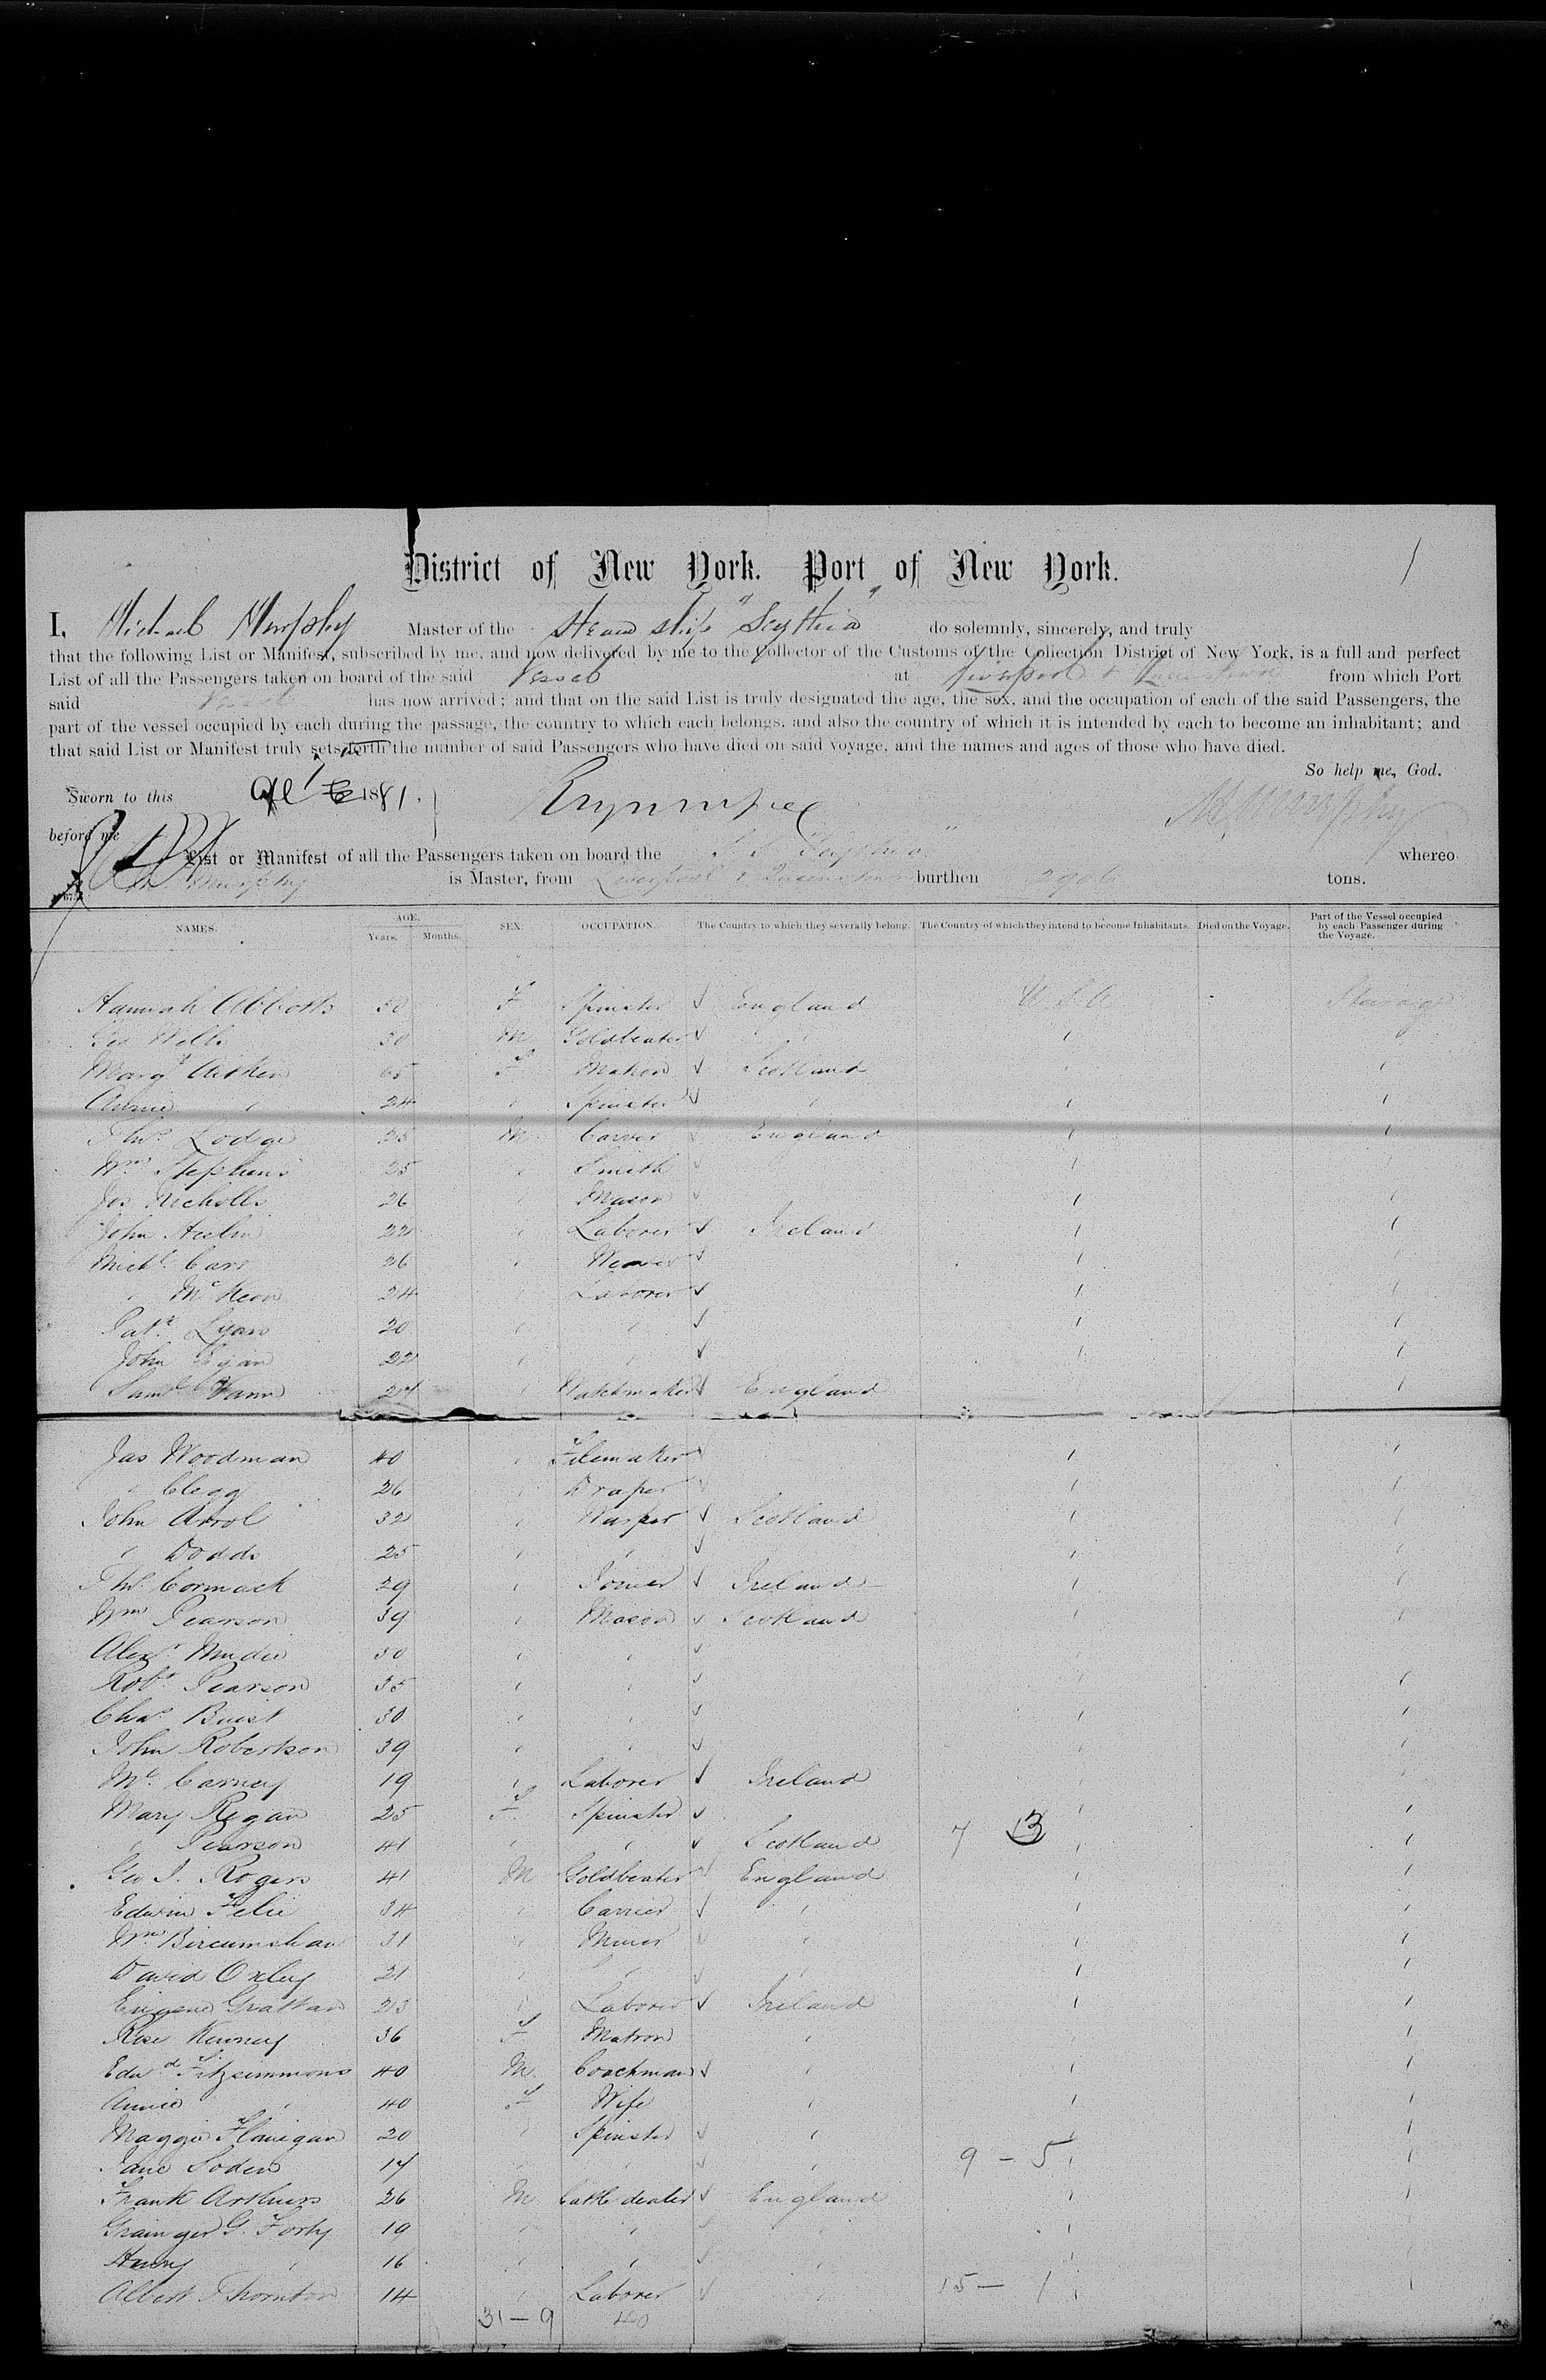 District of New York. Port of New York.
I, Michael Murphy Master of the Steam ship "Scythia" do solemnly, sincerely, and truly
that the following List or Manifest, subscribed by me, and now delivered by me to the Collector of the Customs of the Collection District of New York, is a full and perfect
List of all the Passengers taken on board of the said Vessel at Liverpool & Queenstown from which Port
said Vessel has now arrived; and that on the said List is truly designated the age, the sex, and the occupation of each of the said Passengers, the
part of the vessel occupied by each during the passage, the country to which each belongs, and also the country of which it is intended by each to become an inhabitant; and
that said List or Manifest truly sets forth the number of said Passengers who have died on said voyage, and the names and ages of those who have died.
So help me, God.
Sworn to this 1881. M. Murphy
before me
List or Manifest of all the Passengers taken on board the S. S. Scythia whereo
M Murphy is Master, from Liverpool & Queenstown burthen 2906 tons.
NAMES. AGE. Years. Months. SEX. OCCUPATION. The Country to which they severally belong. The Country of which they intend to become Inhabitants. Died on the Voyage. Part of the Vessel occupied by each Passenger during the Voyage.
Hannah Abbotts 50 F Spinster England U.S.A. Steerage
Geo Wells 30 M Goldbeater "
Margt Aitken 65 F Matron Scotland
Annie " 24 " Spinster "
Thos Lodge 25 M Carver England
Wm Stephens 25 " Smith
Jos Nicholls 26 " Mason
John 22 " Laborer Ireland
Michl Carr 26 " Weaver
" McKeon 24 " Laborer
Patk Lyons 20 " "
John Egan 22 " "
Saml Vann 27 " Watchmaker England
Jas Woodman 40 " Filemaker
" Clegg 26 " Draper
John Arrol 32 " Warper Scotland
" Dodds 25 " "
Thos Cormack 29 " Joiner Ireland
Wm Pearson 39 " Mason Scotland
Alexr Mudie 50 " "
Robt Pearson 35 " "
Chas Buist 30 " "
John Robertson 39 " "
Ml Carney 19 " Laborer Ireland
Mary Regan 25 F Spinster
" Pearson 41 " " Scotland 7 13
Geo J. Rogers 41 M Goldbeater England
Edwin Felie 34 " Carrier "
Wm Bircumshaw 31 " Miner "
David Oxley 21 " " "
Eugene Grattan 23 " Laborer Ireland
Rose Kenney 36 F Matron "
Edwd Fitzsimmons 40 M Coachman "
Annie " 40 F Wife "
Maggie Flanigan 20 " Spinster "
Jane Soden 17 " " " 9 - 5
Frank Arthurs 26 M Cattle dealer England
Grainger G. Forby 19 " "
Henry " 16 " " "
Albert Thornton 14 " Laborer " 15 - 1
31 - 9 40